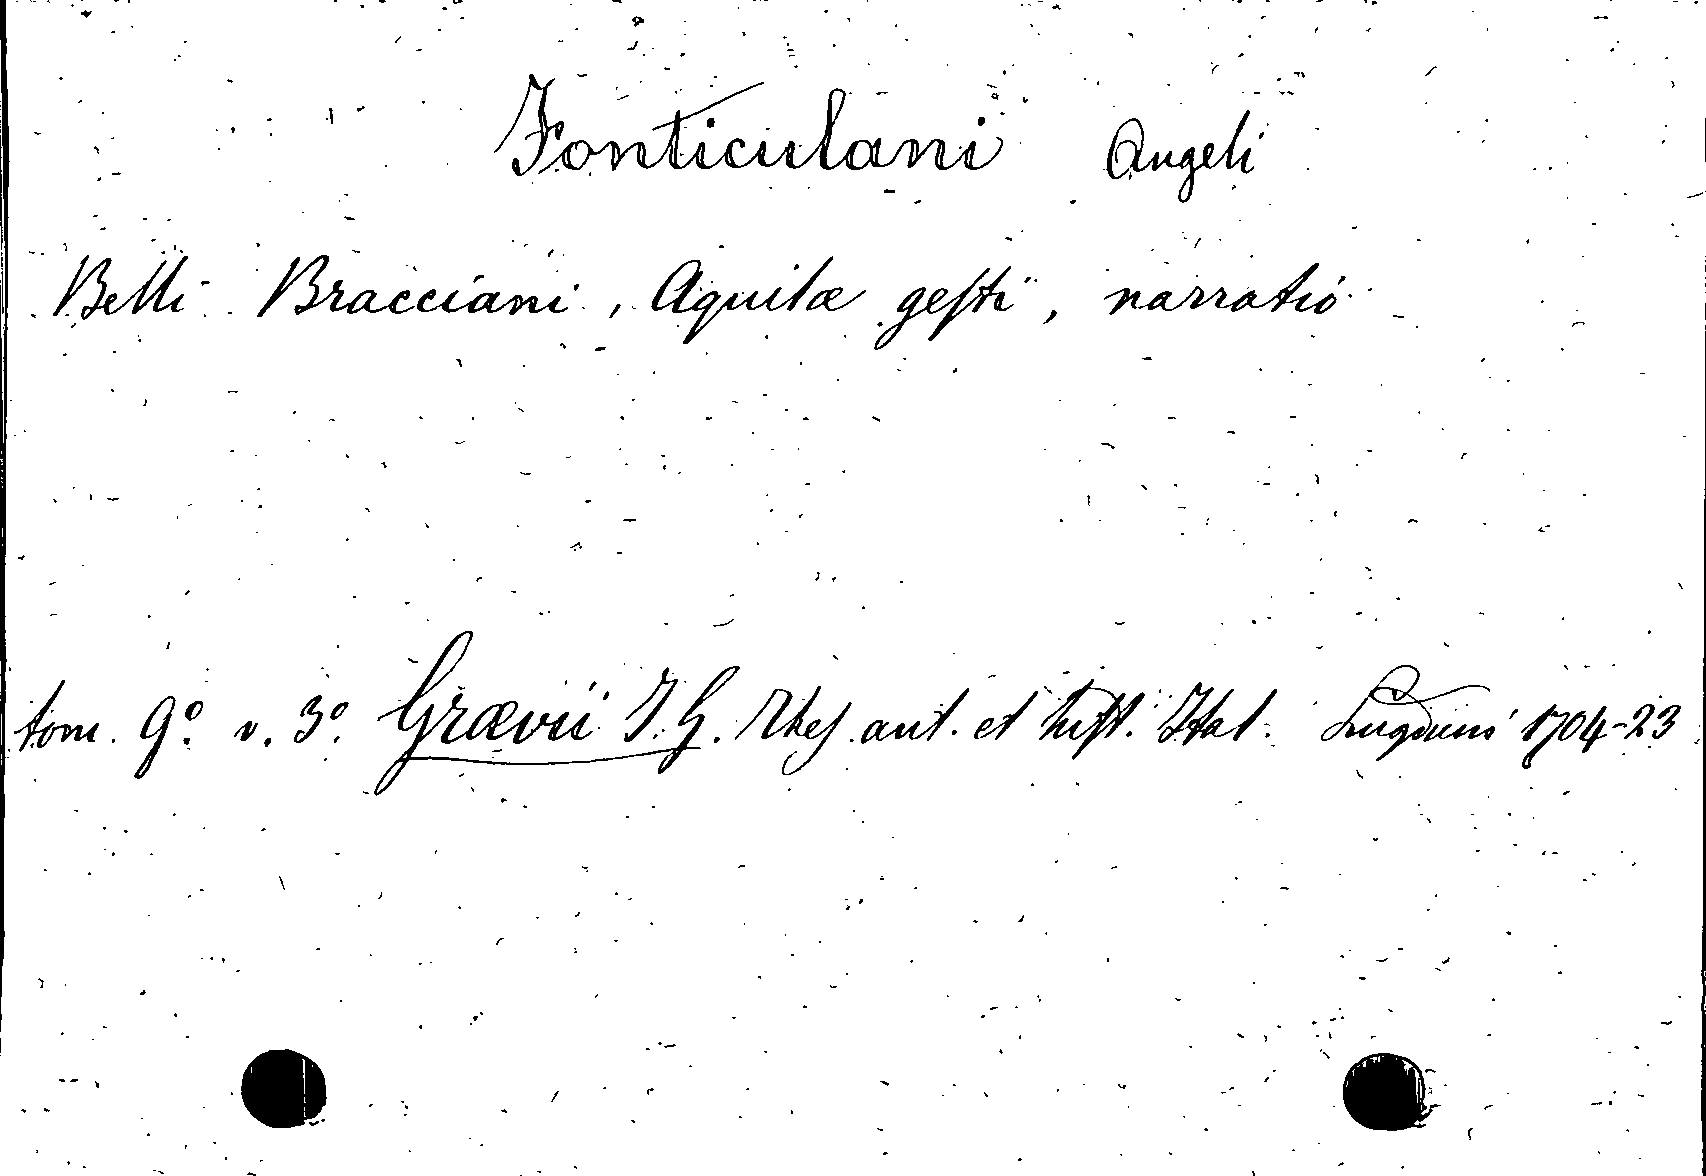 Fonticulani Angeli
Belli Bracciani, Aquilæ gesti, narratio
tom. 9.º v. 3.º Grævii J. G. Thes. ant. et hist. Ital. Lugduni 1704-23